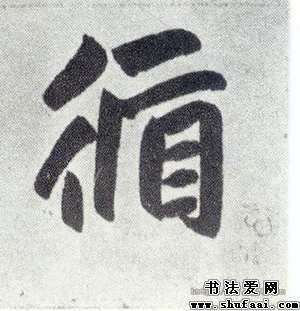 循
书法爱网
www.shufaai.com